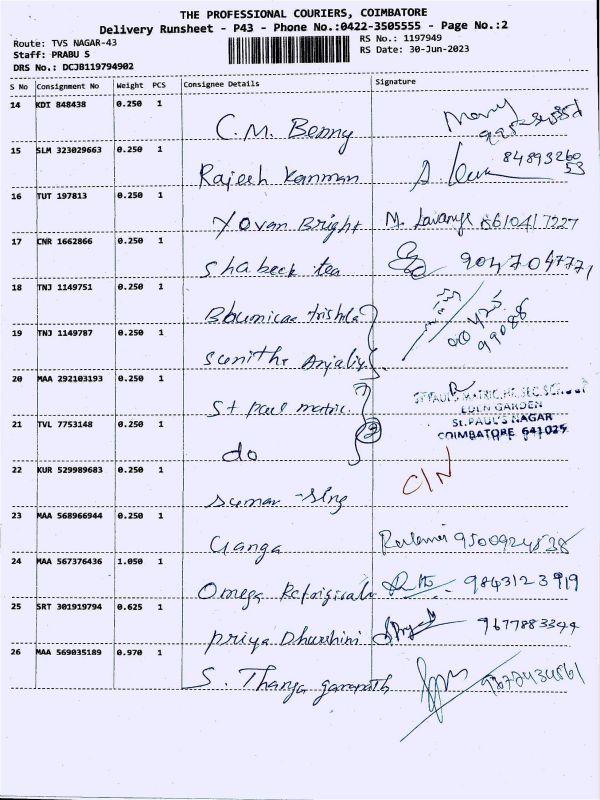 THE PROFESSIONAL COURIERS, COIMBATORE
Delivery Runsheet - P43 - Phone No.:0422-3505555 - Page No.:2
Route: TVS NAGAR-43 RS No.: 1197949
Staff: PRABU S RS Date: 30-Jun-2023
DRS No.: DCJB119794902
S No Consignment No Weight PCS Consignee Details Signature
14 KDI 848438 0.250 1
C.M. Benny
15 SLM 323029663 0.250 1
Rajeeh Kannan 8489326053
16 TUT 197813 0.250 1
Yovan Bright M. Lavanya 6610417227
17 CNR 1662866 0.250 1
Shabeek tea 9047047771
18 TNJ 1149751 0.250 1
Bhumicaa trishla
19 TNJ 1149787 0.250 1
Sunitha Anjaliy
20 MAA 292103193 0.250 1
St paul matric. ST PAUL'S MATRIC.HR.SEC.SCHOOL
EDEN GARDEN
21 TVL 7753148 0.250 1 St.PAUL'S NAGAR
do 2 COIMBATORE 641025
22 KUR 529989683 0.250 1 C/N
Suman Sing
23 MAA 568966944 0.250 1
Ganga 9500924838
24 MAA 567376436 1.050 1
Omega 9843123919
25 SRT 301919794 0.625 1
Priya Dharshini 9677883344
26 MAA 569035189 0.970 1
S. Thanya